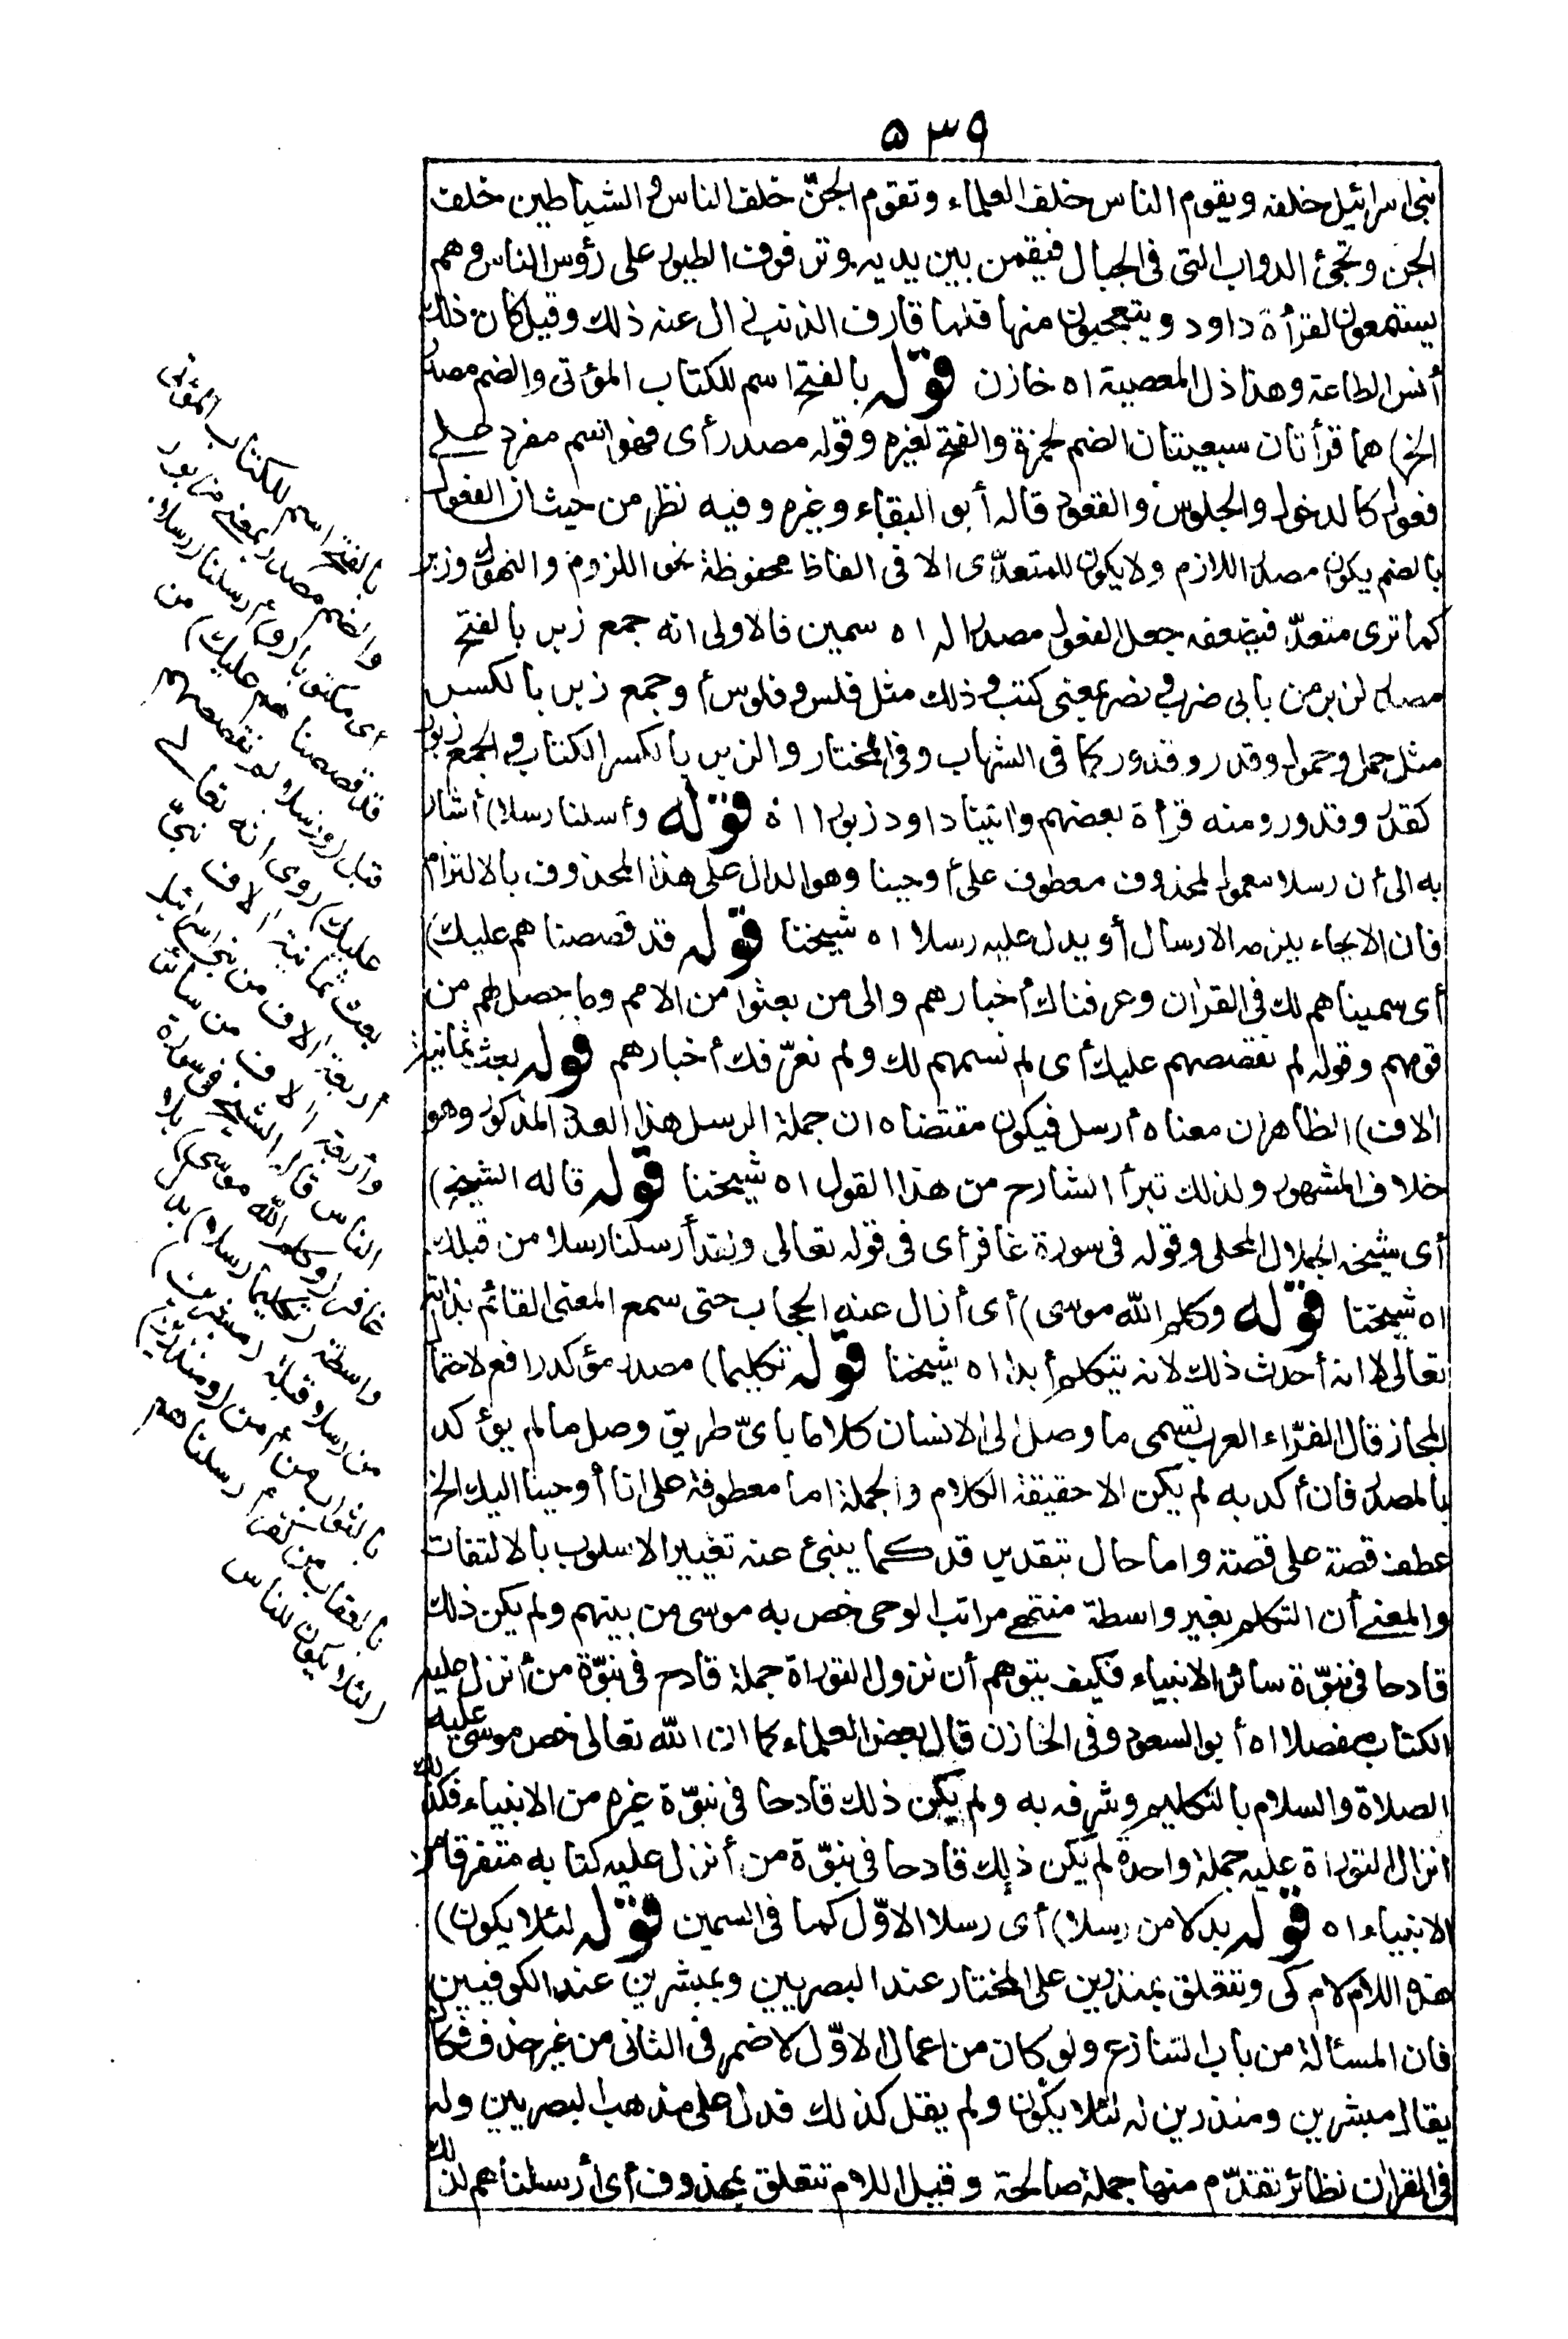 ٥٣٩
بنى اسرائيل خلفه ويقوم الناس خلف العلماء وتقوم الجنّ خلف الناس والشياطين خلف
الجن وتجئ الدواب التى فى الجبال فيقمن بين يديه وترفرف الطيور على رؤس الناس وهم
يستمعون لقرأة داود ويتعجبون منها فلما قارف الذنب زال عنه ذلك وقيل كان ذلك
أنس الطاعة وهذا ذل المعصية اه خازن قوله بالفتح اسم للكتاب المؤتى والضم مصدر
الخ) هما قرأتان سبعيتان الضم لحمزة والفتح لغيره وقوله مصدر أى فهو اسم مفرد على
فعول كالدخول والجلوس والقعود قاله أبو البقاء وغيره وفيه نظر من حيث ان الفعول
بالضم يكون مصدر اللازم ولا يكون للمتعدّى الا فى الفاظ محفوظة نحو اللزوم والنهوك وزبر
كما ترى متعدّ فيضعف جعل الفعول مصدرا له اه سمين فالاولى انه جمع زبر بالفتح
مصدر لزبر من بابى ضرب ونصر بمعنى كتب وذلك مثل فلس وفلوس أو جمع زبر بالكسر
مثل حمل وحمول وقدر وقدور كما فى الشهاب وفى المختار والزبر بالكسر الكتاب والجمع زبور
كقدر وقدور ومنه قرأة بعضهم واتينا داود زبورا اه قوله وأسلنا رسلا) أشار
به الى أن رسلا معمول لمحذوف معطوف على أوحينا وهو الدال على هذا المحذوف بالالتزام
فان الايحاء يلزمه الارسال أو يدل عليه رسلا اه شيخنا قوله قد قصصناهم عليك)
أى سميناهم لك فى القران وعرفناك أخبارهم والى من بعثوا من الامم وما حصل لهم من
قومهم وقوله لم نقصصهم عليك أى لم نسمهم لك ولم نعرّفك أخبارهم قوله بعث ثمانية
الاف) الظاهر ان معناه أرسل فيكون مقتضاه ان جملة الرسل هذا العدد المذكور وهو
خلاف المشهور ولذلك تبرأ الشارح من هذا القول اه شيخنا قوله قاله الشيخ)
أى شيخه الجلال المحلى وقوله فى سورة غافر أى فى قوله تعالى ولقد أرسلنا رسلا من قبلك
اه شيخنا قوله وكلم الله موسى) أى أزال عنه الحجاب حتى سمع المعنى القائم بذاته
تعالى لا انه أحدث ذلك لانه يتكلم أبدا اه شيخنا قوله تكليما) مصدر مؤكد رافع لاحتما
المجاز قال الفرّاء العرب تسمى ما وصل الى الانسان كلاما باىّ طريق وصل ما لم يؤكد
بالمصدر فان أكد به لم يكن الا حقيقة الكلام والجملة اما معطوفة على انا أوحينا اليك الخ
عطف قصة على قصة واما حال بتقدير قد كما ينبئ عنه تغيير الاسلوب بالالتفات
والمعنى أن التكلم بغير واسطة منتهى مراتب الوحى خص به موسى من بينهم ولم يكن ذلك
قادحا فى نبوّة سائر الانبياء فكيف يتوهم أن نزول التوراة جملة قادح فى نبوّة من أنزل عليه
الكتاب مفصلا اه أبو السعود وفى الخازن قال بعض العلماء كما ان الله تعالى خص موسى عليه
الصلاة والسلام بالتكليم وشرفه به ولم يكن ذلك قادحا فى نبوّة غيره من الانبياء فكذلك
انزال التوراة عليه جملة واحدة لم يكن ذلك قادحا فى نبوّة من أنزل عليه كتابه متفرقا من
الانبياء اه قوله بدلا من رسلا) أى رسلا الاوّل كما فى السمين قوله لئلا يكون)
هذه اللام لام كى وتتعلق بمنذرين على المختار عند البصريين وبمبشرين عند الكوفيين
فان المسألة من باب التنازع ولو كان من اعمال الاوّل لاضمر فى الثانى من غير حذف فكان
يقال مبشرين ومنذرين له لئلا يكون ولم يقل كذلك فدل على مذهب البصريين وله
فى القران نظائر تقدّم منها جملة صالحة وقيل اللام تتعلق بمحذوف أى أرسلناهم لذلك
بالفتح اسم للكتاب المؤتى
والضم مصدر بمعنى مزبور
أى مكتوبا (و) أرسلنا (رسلا
قد قصصناهم عليك) من
قبل (ورسلا لم نقصصهم
عليك) روى انه تعالى
بعث ثمانية الاف نبىّ
أربعة الاف من بنى اسرائيل
وأربعة الاف من سائر
الناس قاله الشيخ فى سورة
غافر (وكلم الله موسى) بلا
واسطة (تكليما رسلا) بدل
من رسلا قبله (مبشرين)
بالثواب من أمن (ومنذرين)
بالعقاب من كفر أرسلناهم
(لئلا يكون للناس